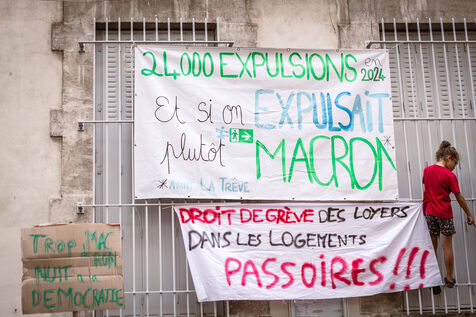 24000 EXPULSIONS en 2024
Et si on EXPULSAIT
plutôt MACRON
* AVANT LA TRÊVE
DROIT DE GRÈVE DES LOYERS
DANS LES LOGEMENTS
PASSOIRES!!!
TROP MAC
RON
NUIT à la
DEMOCRATIE